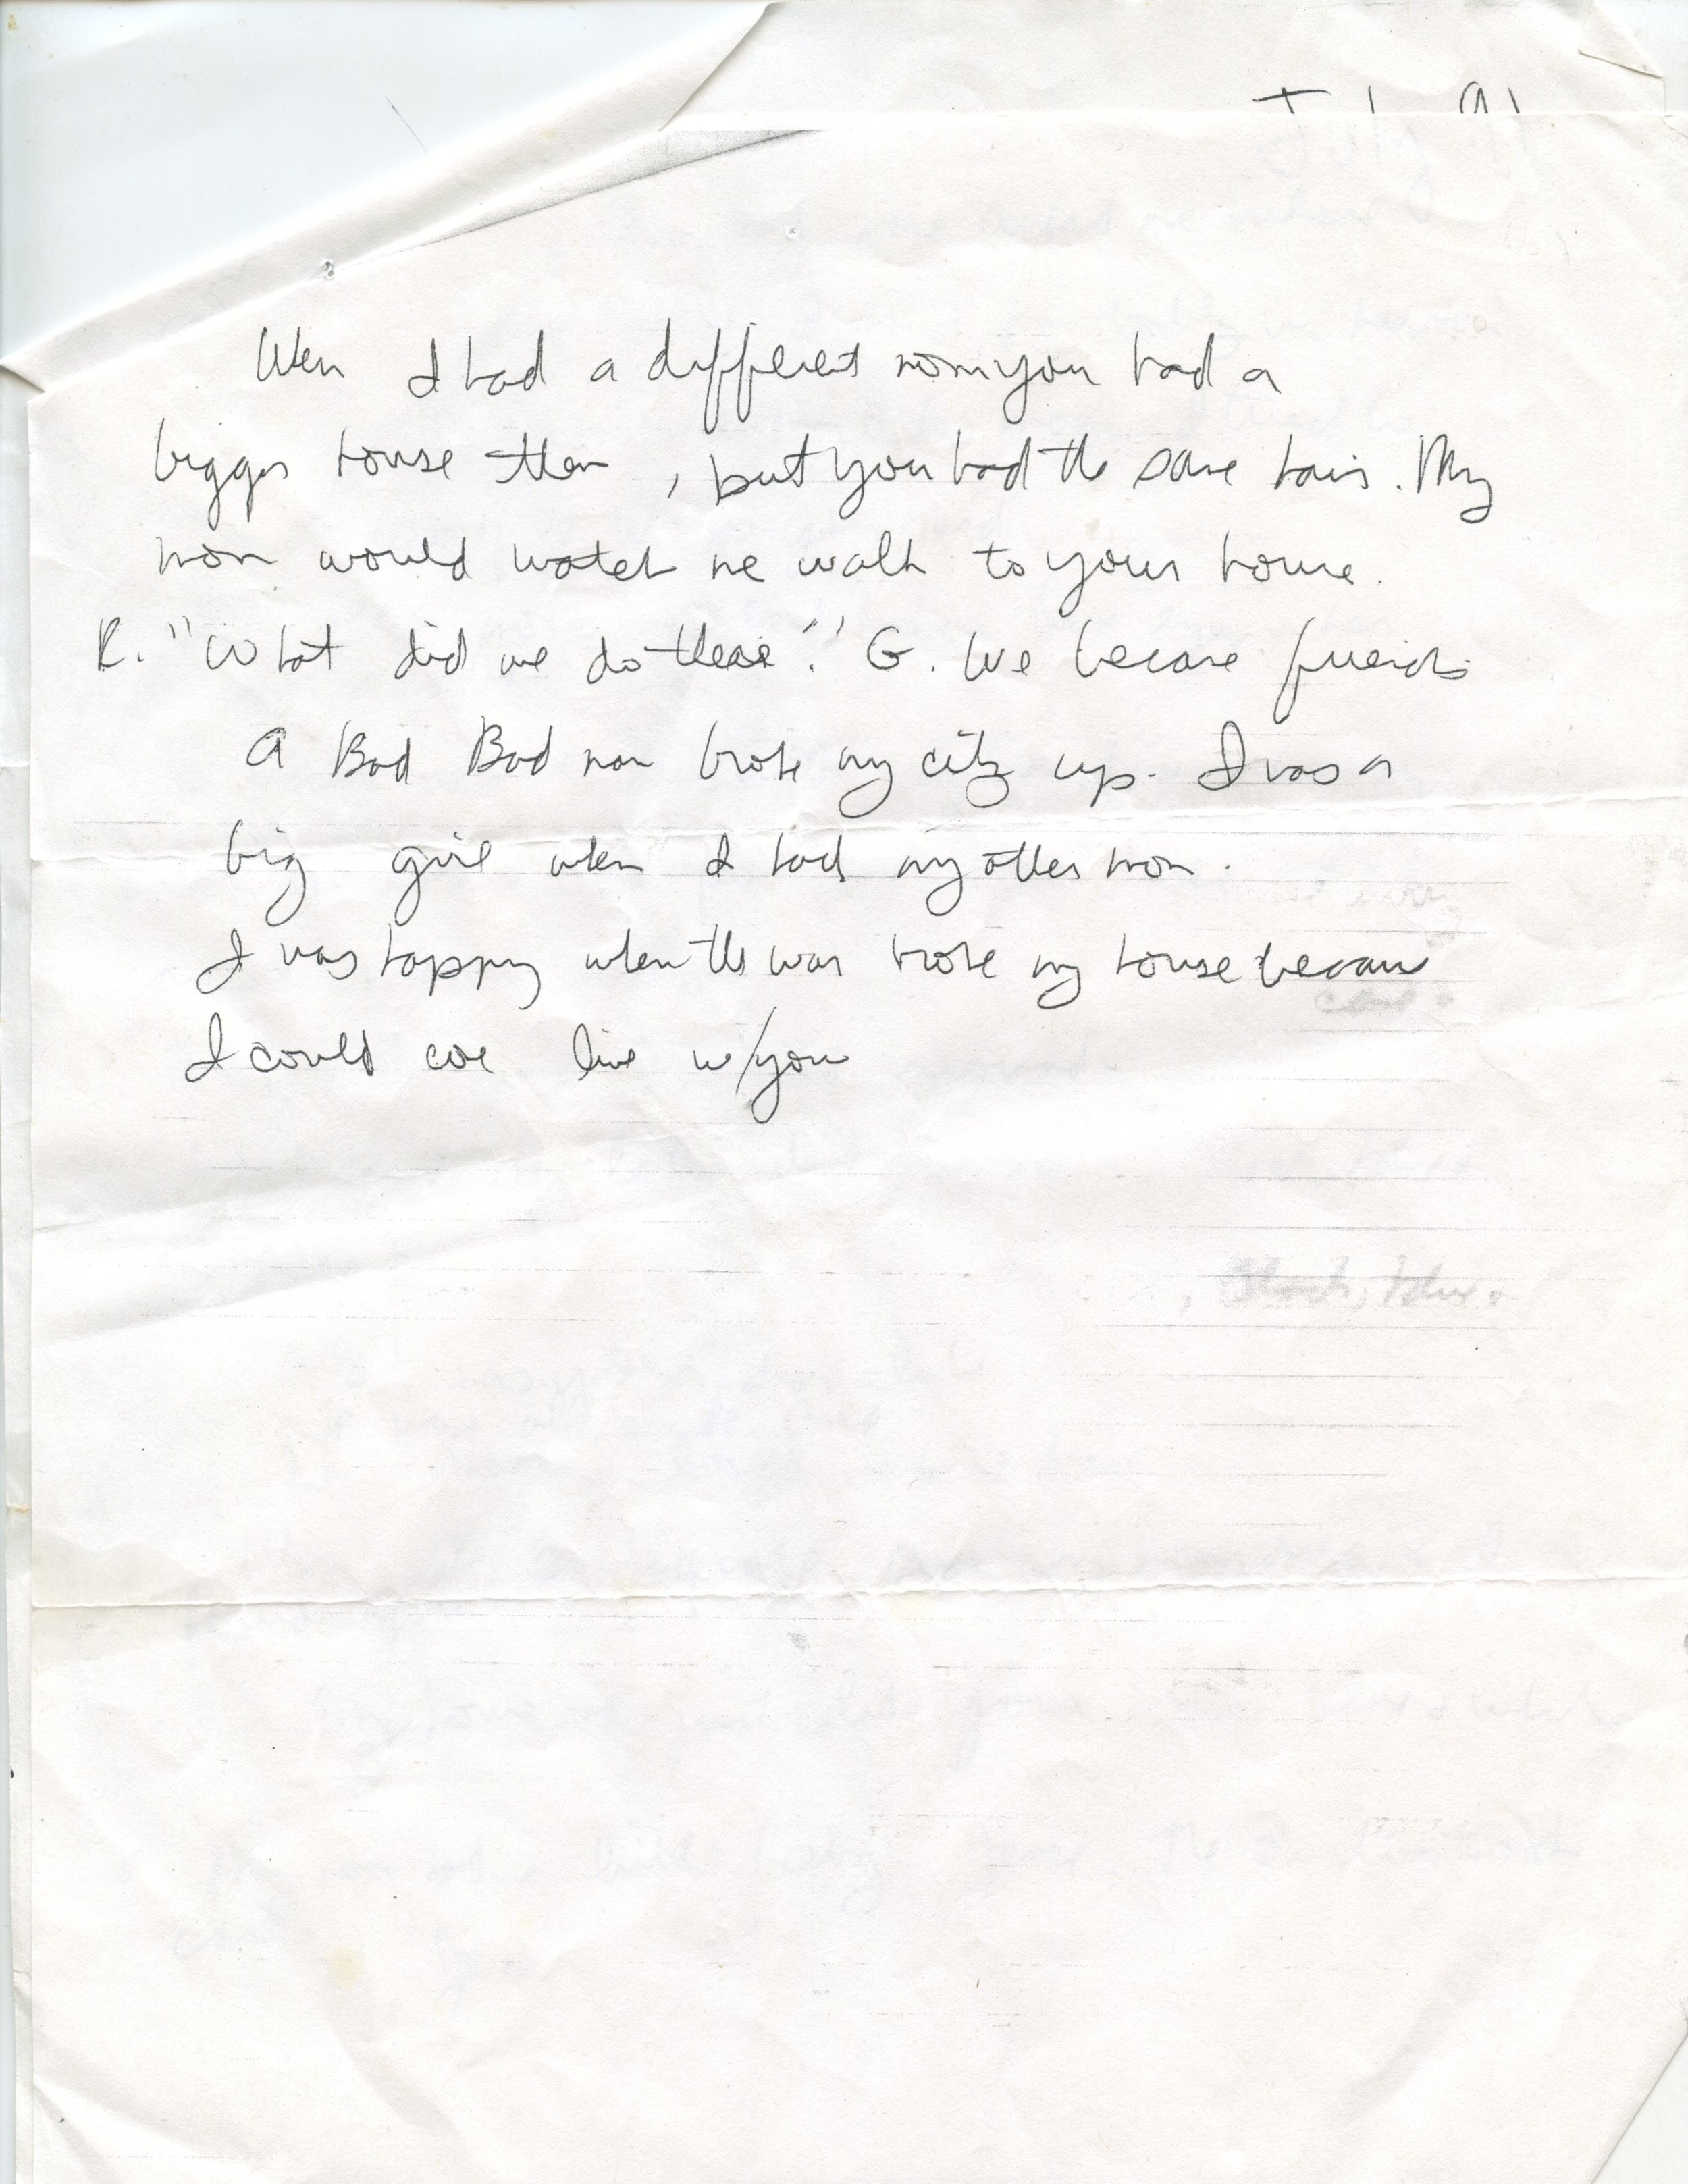 When I had a different mom you had a
bigger house then, but you had the same hair. My
mom would watch me walk to your house.
R. "What did we do there?" G. We became friends
A Bad Bad man broke my city up. I was a
big girl when I had my other mom.
I was happy when the war broke my house because
I could come live w/you